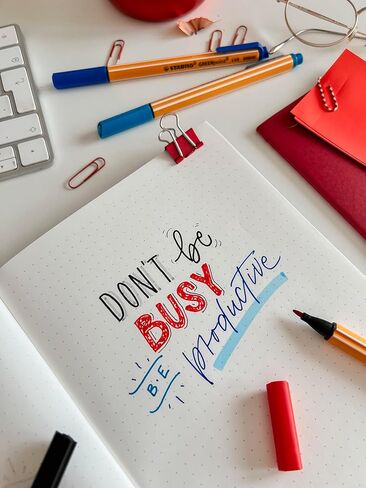 STABILO GREENpoint
DON'T be
BUSY
BE productive